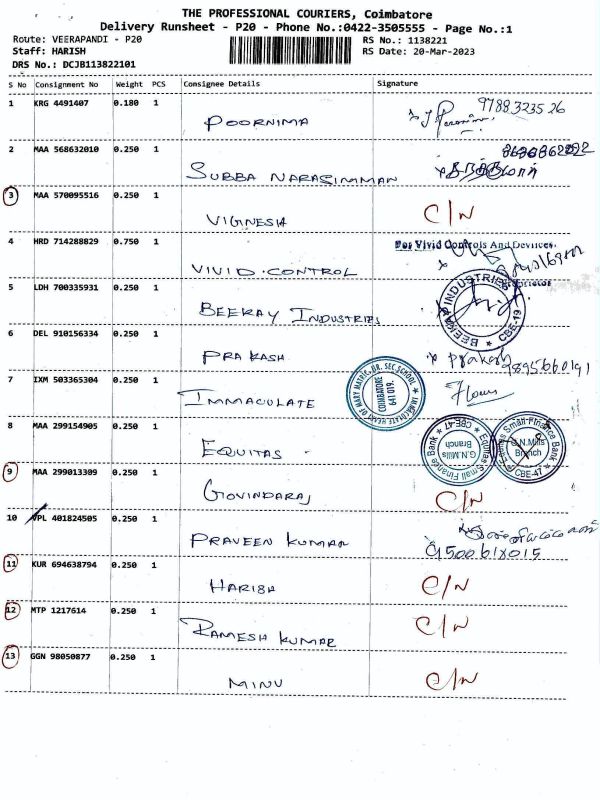 THE PROFESSIONAL COURIERS, Coimbatore
Delivery Runsheet - P20 - Phone No.:0422-3505555 - Page No.:1
Route: VEERAPANDI - P20 RS No.: 1138221
Staff: HARISH RS Date: 20-Mar-2023
DRS No.: DCJB113822101
S No Consignment No Weight PCS Consignee Details Signature
1 KRG 4491407 0.180 1 POORNIMA 9788323526
2 MAA 568632010 0.250 1 SUBBA NARASIMMAN
3 MAA 570095516 0.250 1 VIGINESIA C/N
4 HRD 714288829 0.750 1 VIVID.CONTROL For Vivid Controls And Devices.
5 LDH 700335931 0.250 1 BEEKAY INDUSTRIES BEEKAY INDUSTRIES ★ CBE-19 ★
6 DEL 910156334 0.250 1 PRAKASH Prakash 9895660191
7 IXM 503365304 0.250 1 IMMACULATE IMMACULATE HEART OF MARY MATRIC. HR. SEC. SCHOOL COIMBATORE 641 019.
8 MAA 299154905 0.250 1 EQUITAS Equitas Small Finance Bank G.N.Mills Branch CBE-47 Equitas Small Finance Bank G.N.Mills Branch CBE-47
9 MAA 299013309 0.250 1 GOVINDARAJ C/N
10 VPL 401824505 0.250 1 PRAVEEN KUMAR 9500618015
11 KUR 694638794 0.250 1 HARISH C/N
12 MTP 1217614 0.250 1 RAMESH KUMAR C/N
13 GGN 98050877 0.250 1 MINU C/N